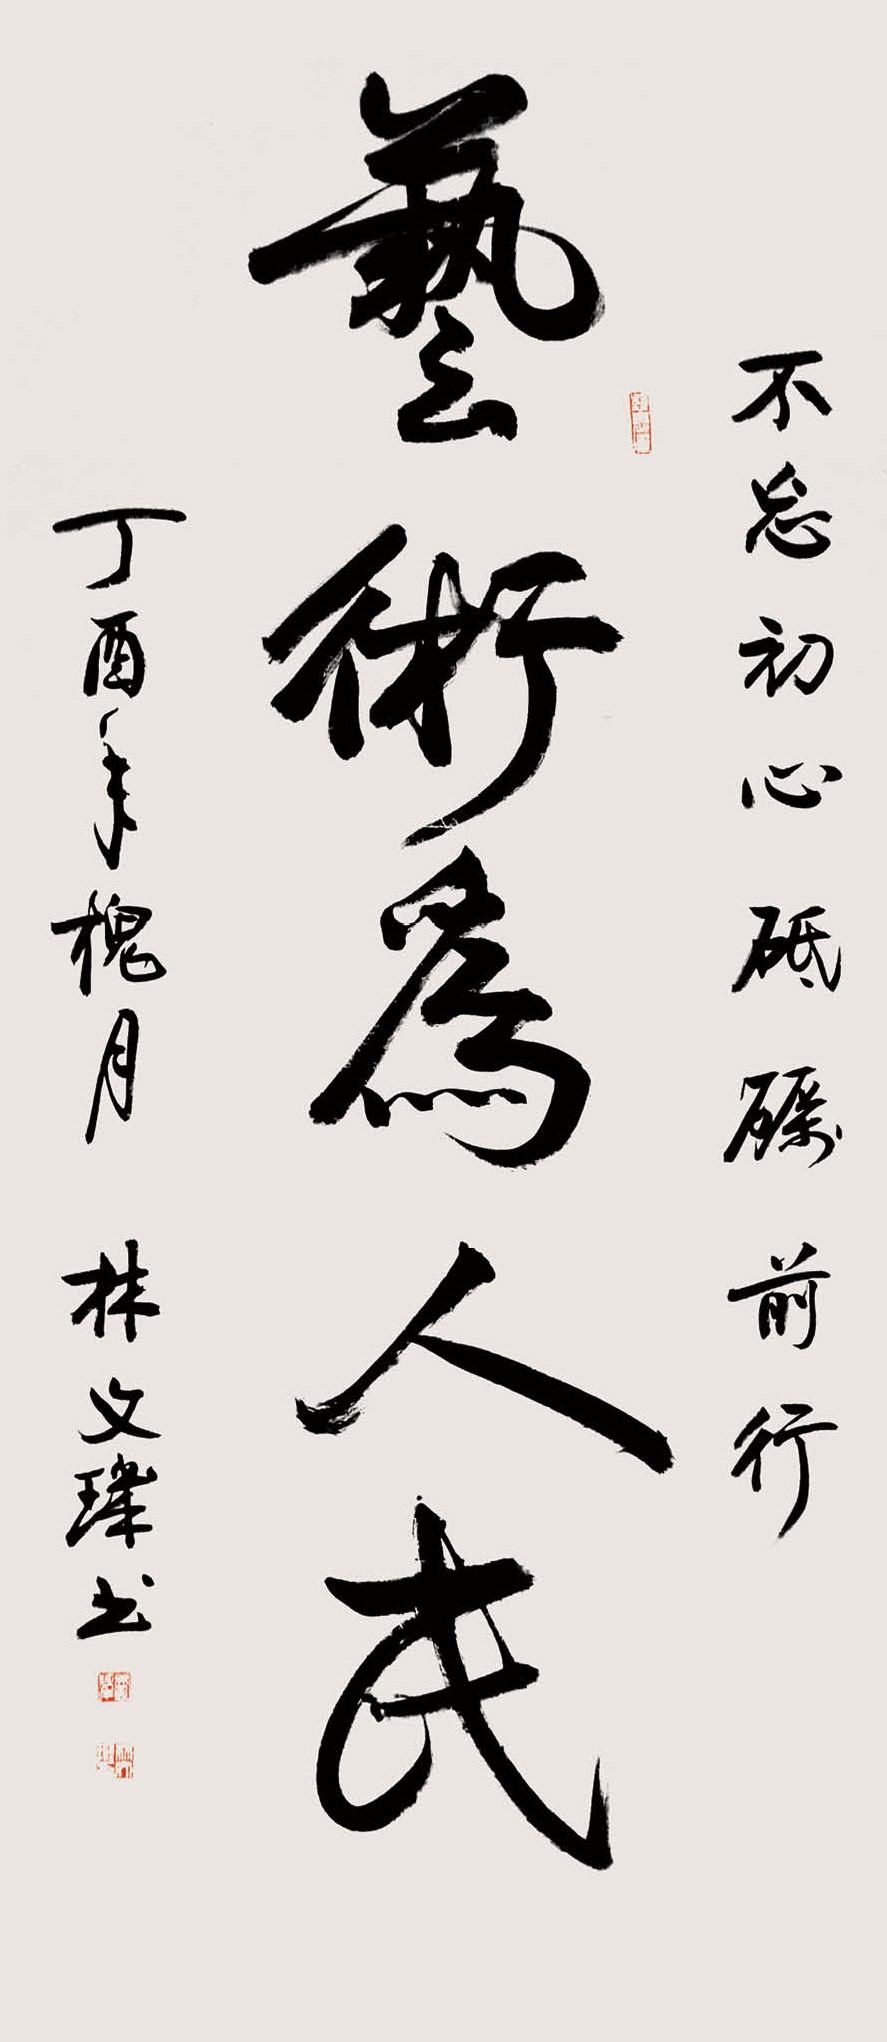 不忘初心砥砺前行
藝術為人民
丁酉年槐月 林文璞书